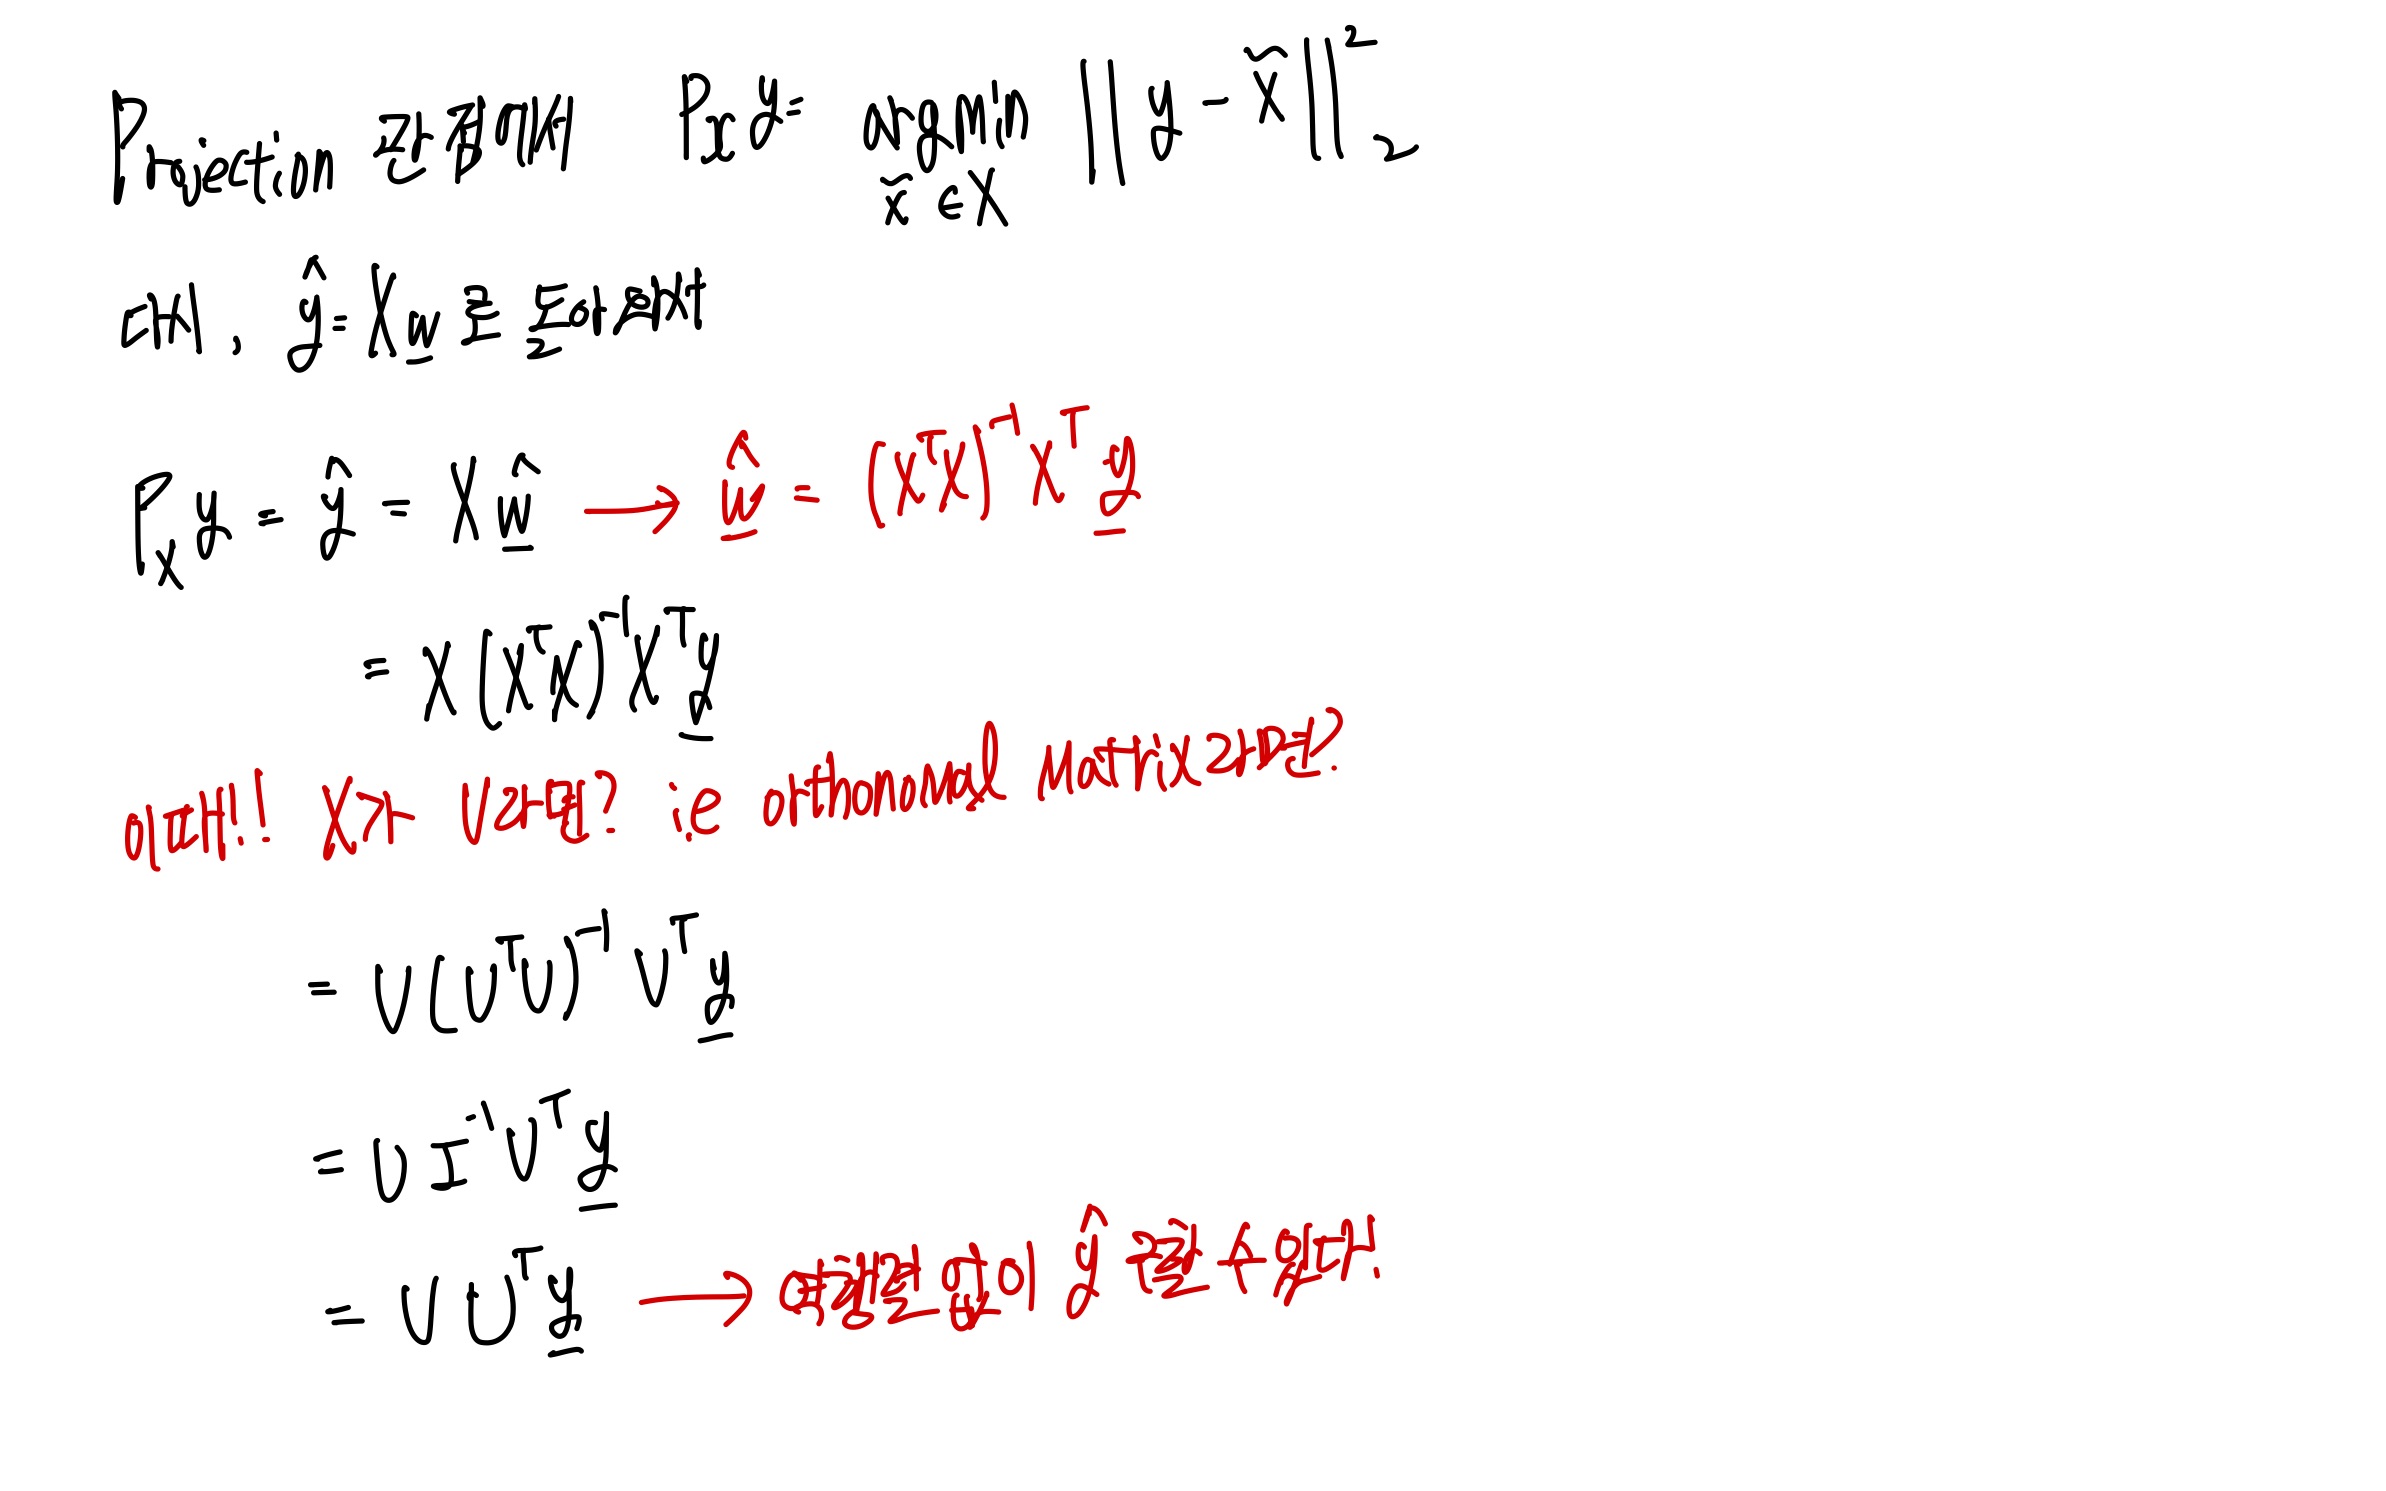 Projection 을 정의하면 P_X y = argmin_{x̃ ∈ X} || y - x̃ ||²₂
다시, ŷ = Xw 로
P_X y = ŷ = Xŵ → ŵ = (XᵀX)⁻¹Xᵀy
= X(XᵀX)⁻¹Xᵀy
이때!! X가 U라면? i.e orthonormal Matrix 라면?
= U(UᵀU)⁻¹Uᵀy
= U I⁻¹ Uᵀ y
= U Uᵀ y → 역행렬 없이 ŷ 찾을 수 있다!